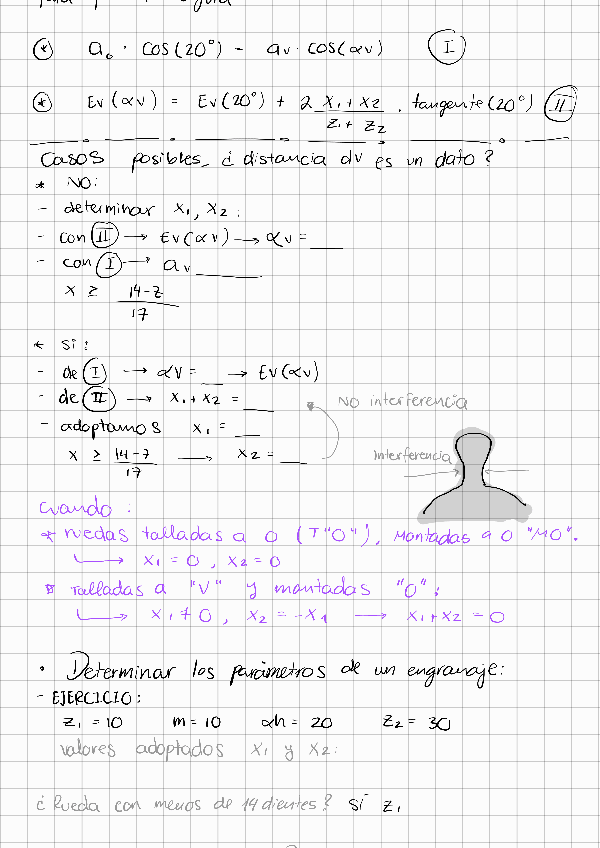 * a₀ · cos(20°) = av · cos(αv) I
* Ev(αv) = Ev(20°) + 2 (x₁+x₂)/(z₁+z₂) · tangente(20°) II
Casos posibles, ¿distancia dv es un dato?
* NO:
- determinar x₁, x₂:
- con II → Ev(αv) → αv = ___
- con I → av ____
x ≥ (14-z)/17
* SI:
- de I → αv = __ → Ev(αv)
- de II → x₁+x₂ = ___
No interferencia
- adoptamos x₁ = __
x ≥ (14-z)/17 → x₂ = ___
Interferencia
Cuando:
* ruedas talladas a 0 (T"0"), montadas a 0 "M0".
→ x₁ = 0, x₂ = 0
* Talladas a "V" y montadas "0":
→ x₁ ≠ 0, x₂ = -x₁ → x₁+x₂ = 0
· Determinar los parámetros de un engranaje:
- EJERCICIO:
z₁ = 10 m = 10 αh = 20 z₂ = 30
valores adoptados x₁ y x₂:
¿Rueda con menos de 14 dientes? sí z₁